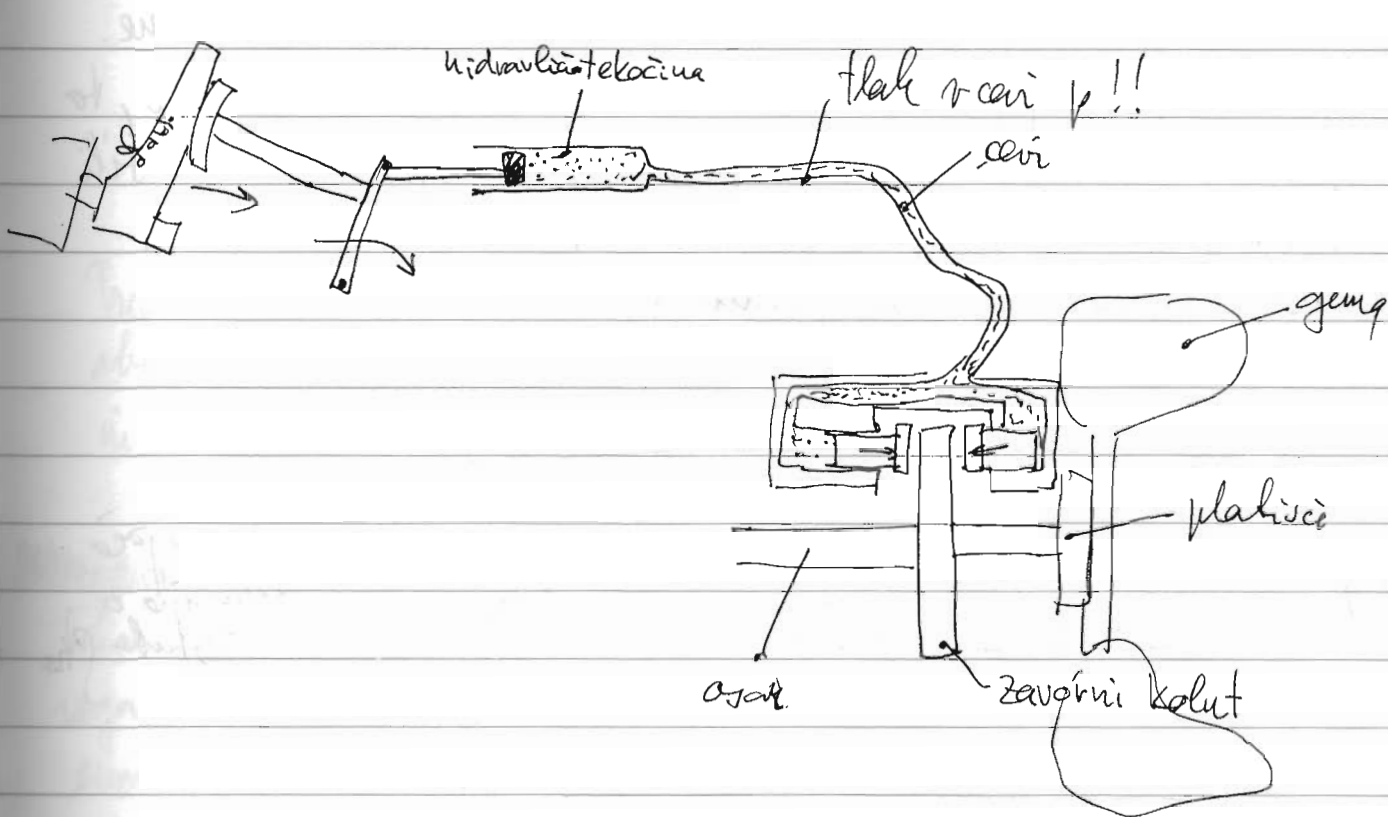 hidravlična tekočina
tlak v cevi p!!
cevi
guma
platišče
osar
zavorni kolut